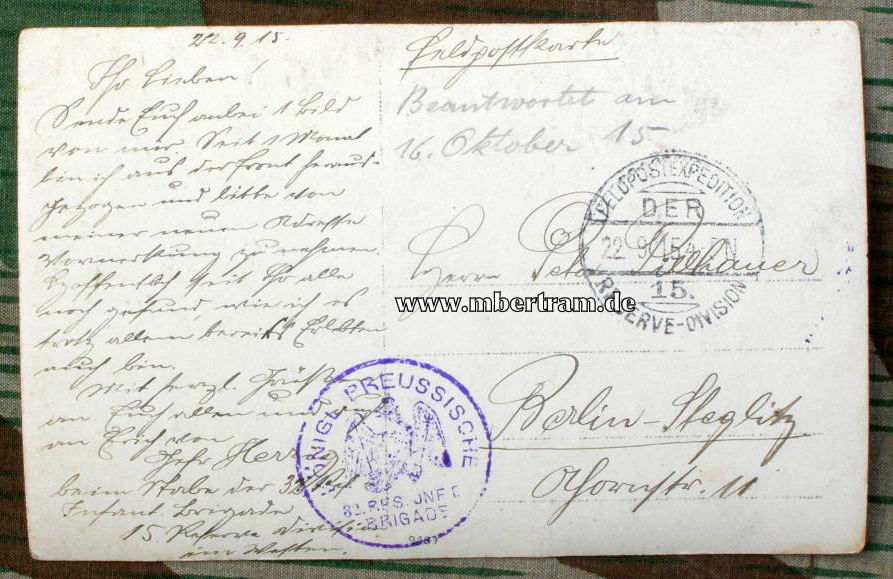 22.9.15.
Ihr Lieben!
Sende Euch anbei 1 Bild
von mir. Seit 1 Monat
bin ich aus der Front heraus-
gezogen und bitte von
meiner neuen Adresse
Vormerkung zu nehmen.
Hoffentlich seit Ihr alle
noch gesund, wie ich es
trotz allem bereits Erlebten
auch bin.
Mit herzl. Grüße
an Euch allen und auch
an Erich von
Herz
beim Stabe der 32 Res.
Infant Brigade
15 Reserve Division
im Westen.
Feldpostkarte
Beantwortet am
16. Oktober 15
FELDPOSTEXPEDITION
DER
22 9 15 4-5 N
15.
RESERVE-DIVISION
Herrn Peter
www.mbertram.de
Berlin-Steglitz
Thornstr. 11
KÖNIGL. PREUSSISCHE
32. RES. INFT.
BRIGADE